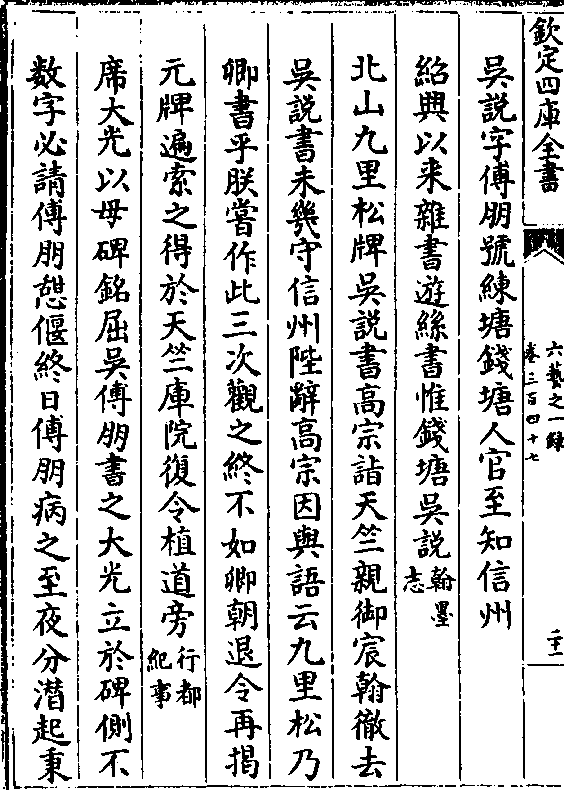 欽定四庫全書
六藝之一錄
卷三百四十七
二十一
吳説字傅朋號練塘錢塘人官至知信州
紹興以来雜書遊絲書惟錢塘吳説翰墨志
北山九里松牌吳説書高宗詣天竺親御宸翰徹去
吳説書未幾守信州陛辭高宗因與語云九里松乃
卿書乎朕嘗作此三次觀之終不如卿朝退令再揭
元牌遍索之得於天竺庫院復令植道旁行都紀事
席大光以母碑銘屈吳傅朋書之大光立於碑側不
数字必請傅朋憇偃終日傅朋病之至夜分潛起秉